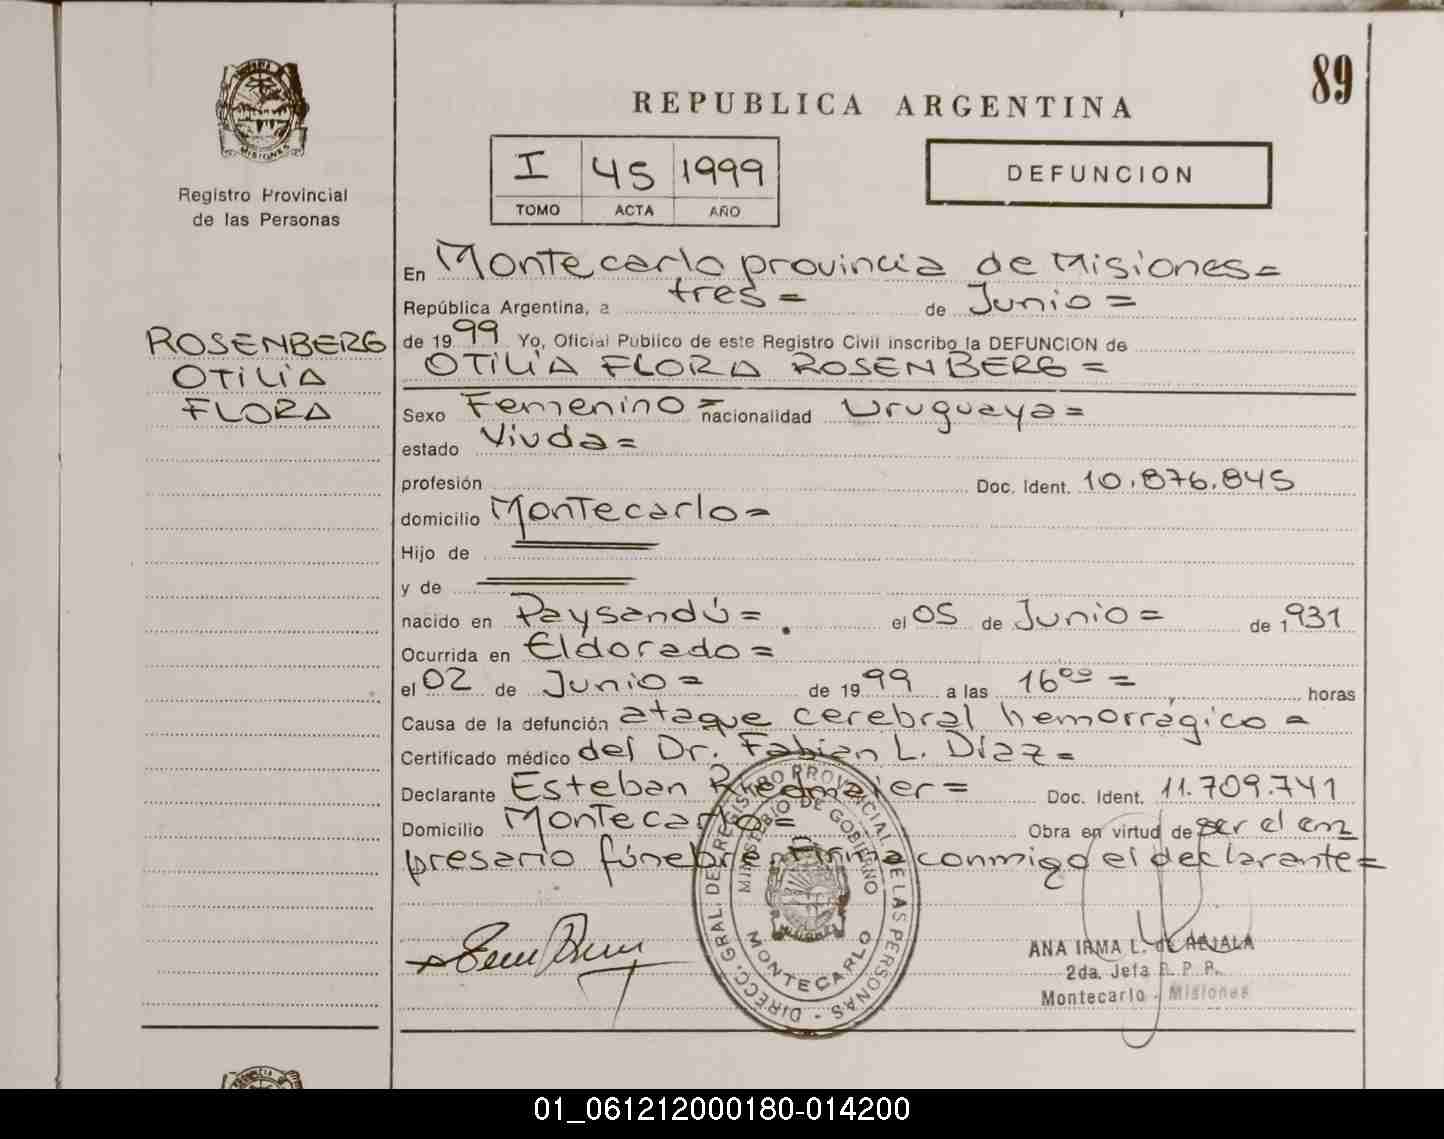 89
REPUBLICA ARGENTINA
I 45 1999
TOMO ACTA AÑO
DEFUNCION
MISIONES
Registro Provincial
de las Personas
ROSENBERG
OTILIA
FLORA
En Montecarlo provincia de Misiones=
República Argentina, a tres= de Junio=
de 1999 Yo, Oficial Publico de este Registro Civil inscribo la DEFUNCION de
OTILIA FLORA ROSENBERG=
Sexo Femenino= nacionalidad Uruguaya=
estado Viuda=
profesión Doc. Ident. 10.876.845
domicilio Montecarlo=
Hijo de
y de
nacido en Paysandú= el 05 de Junio= de 1931
Ocurrida en Eldorado=
el 02 de Junio= de 1999 a las 16oo= horas
Causa de la defunción ataque cerebral hemorrágico=
Certificado médico del Dr. Fabian L. Díaz=
Declarante Esteban = Doc. Ident. 11.709.741
Domicilio Montecarlo= Obra en virtud de ser el em
presario fúnebre firma conmigo el declarante=
DIRECC. GRAL. DEL REGISTRO PROVINCIAL DE LAS PERSONAS -
MINISTERIO DE GOBIERNO
MONTECARLO
ANA IRMA L. de REJALA
2da. Jefa R. P. P.
Montecarlo - Misiones
01_061212000180-014200